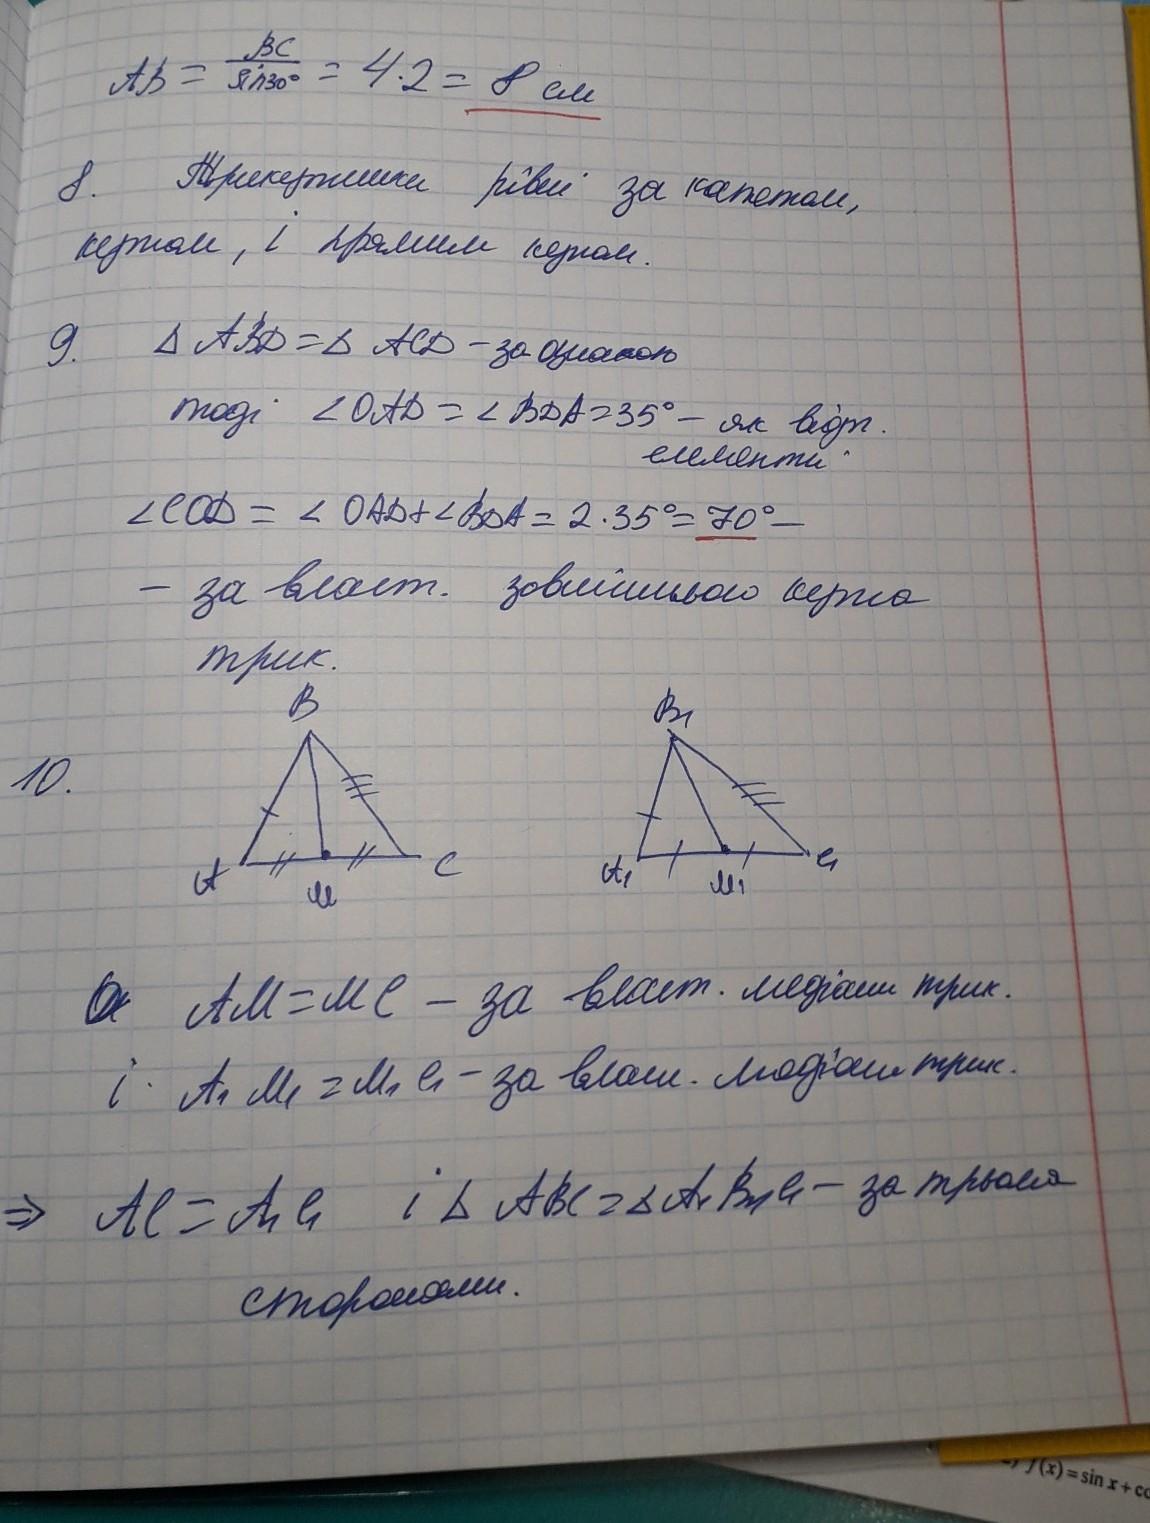 AB = BC / sin30° = 4·2 = 8 см
8. Трикутники рівні за катетом,
кутом, і прямим кутом.
9. Δ ABD = Δ ACD – за ознакою
тоді ∠OAD = ∠BDA = 35° – як відп.
елементи.
∠COD = ∠OAD + ∠BDA = 2·35° = 70° –
– за власт. зовнішнього кута
трик.
B B₁
10.
A M C A₁ M₁ C₁
AM = MC – за власт. медіани трик.
і A₁M₁ = M₁C₁ – за влас. медіани трик.
⇒ AC = A₁C₁ і Δ ABC = Δ A₁B₁C₁ – за трьома
сторонами.
f(x) = sin x + co